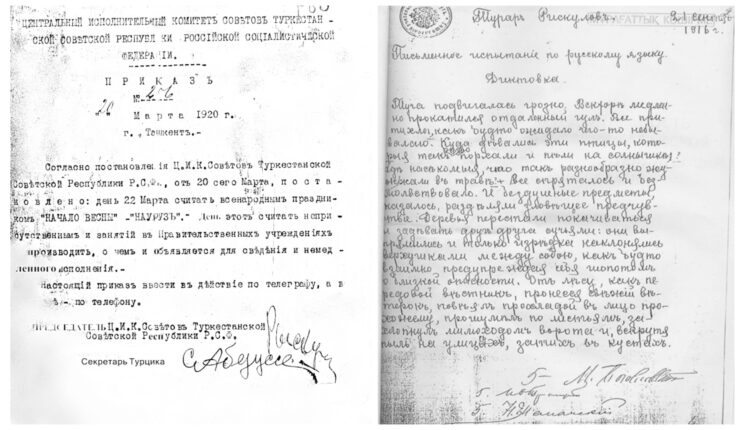 ЦЕНТРАЛЬНЫЙ ИСПОЛНИТЕЛЬНЫЙ КОМИТЕТ СОВѢТОВЪ ТУРКЕСТАН-
СКОЙ СОВѢТСКОЙ РЕСПУБЛ КИ РОССІЙСКОЙ СОЦІАЛИСТИЧЕСКОЙ
ФЕДЕРАЦІИ.
П Р И К А З Ъ
№ 276
20 Марта 1920 г.
г. Ташкент.-
Согласно постановленія Ц.И.К.Совѣтовъ Туркестанской
Совѣтской Республики Р.С.Ф., отъ 20 сего Марта, п о с т а
н о в л е н о: день 22 Марта считать всенароднымъ праздни-
комъ "НАЧАЛО ВЕСНЫ" -"НАУРУЗЪ".- День этотъ считать непри-
сутственнымъ и занятій въ Правительственныхъ учрежденіяхъ
производить, о чемъ и объявляется для свѣдѣнія и немед-
леннаго исполненія.-
настоящій приказ ввести въ дѣйствіе по телеграфу, а в
по телефону.
ПРЕДСЕДАТЕЛЬ Ц.И.К.Совѣтовъ Туркестанской
Совѣтской Республики Р.С.Ф.
Секретарь Турцика
Тураръ Рискуловъ. 21 сентяб
1916 г.
Письменное испытаніе по русскому языку.
Диктовка.
Туча подвигалась грозно. Вскорѣ медлен-
но прокатился отдаленный гулъ. Все при-
тихло, какъ будто ожидало что-то небы-
валое. Куда дѣвались эти птицы, кото-
рыя такъ порхали и пѣли на солнышкѣ?
насѣкомыя, что такъ разнообразно жу-
жжали въ травѣ, - все спряталось и без-
молвствовало. И бездушные предметы,
казалось, раздѣляли зловѣщее предчув-
ствіе. Деревья перестали покачиваться
и задѣвать другъ друга сучьями: они вы-
прямились и только изрѣдка наклонялись
верхушками между собою, какъ будто
взаимно предупреждая себя шопотомъ
о близкой опасности. Отъ лѣсу, какъ пе-
редовой вѣстникъ, пронесся свѣжій вѣ-
терокъ, повѣялъ прохладой въ лицо про-
хожему, прошумѣлъ по листьямъ, за-
хлопнулъ мимоходомъ ворота и, вскрутя
пыль на улицѣ, затихъ въ кустахъ.
5-
5.
5